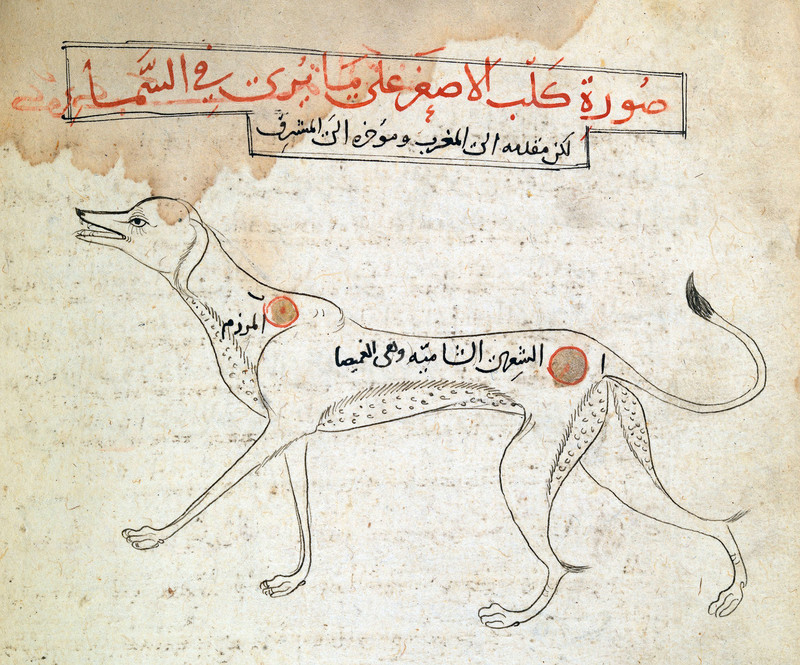 صورة كلب الاصغر على ما يرى في السماء
لكن مقدمه الى المغرب وموخره الى المشرق
ب
المرزم
الشعرى الشاميه وهى الغميصا
ا